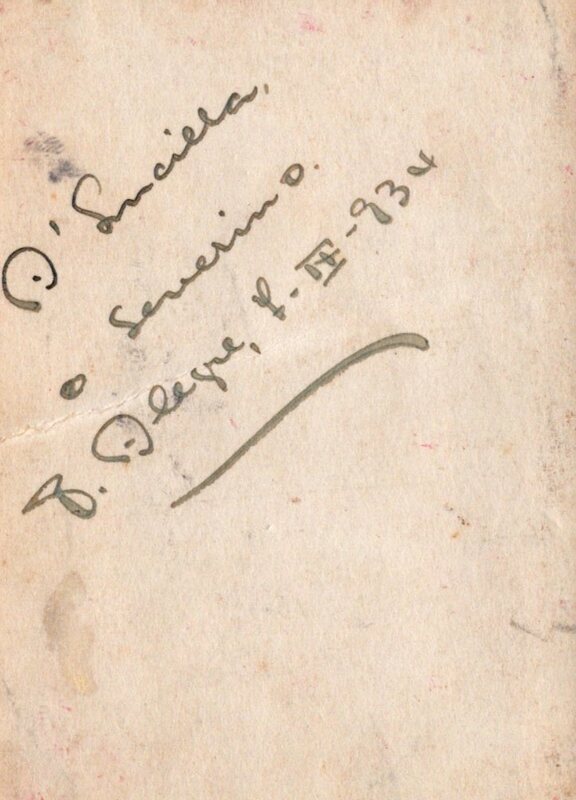 A' Lucilla,
o Severino.
P. Alegre, -IX-934